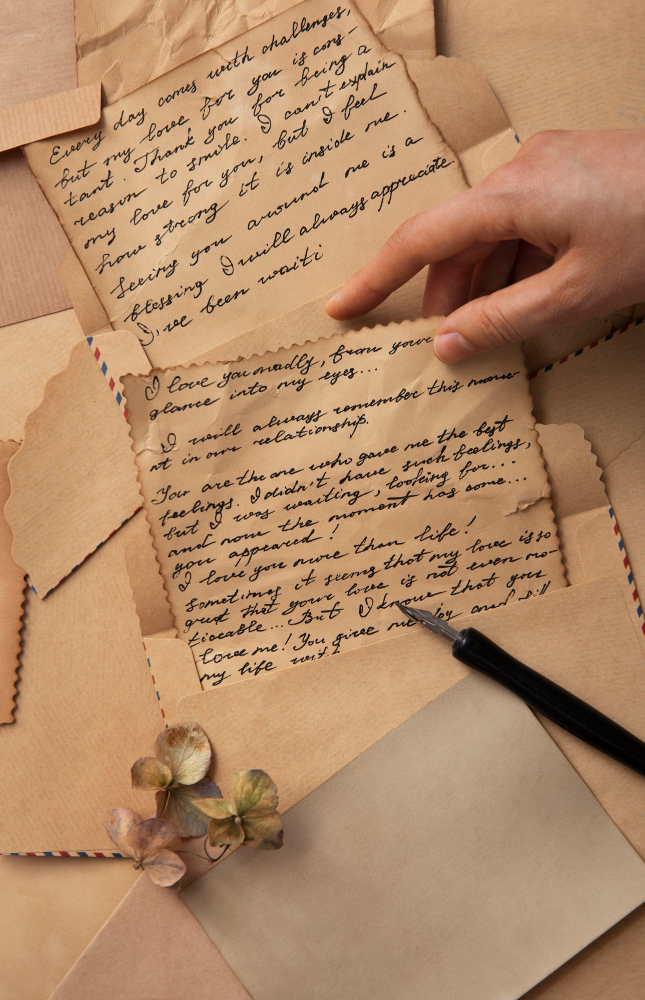 Every day comes with challenges,
but my love for you is cons-
tant. Thank you for being a
reason to smile. I can't explain
my love for you, but I feel
how strong it is inside me.
Seeing you around me is a
blessing I will always appreciate.
I've been waiti
I love you madly, from your
glance into my eyes...
I will always remember this mome
nt in our relationship.
You are the one who gave me the best
feelings. I didn't have such feelings,
but I was waiting, looking for...
and now the moment has come...
you appeared!
I love you more than life!
Sometimes it seems that my love is so
great that your love is not even no-
ticeable... But I know that you
love me! You give me joy and fill
my life with